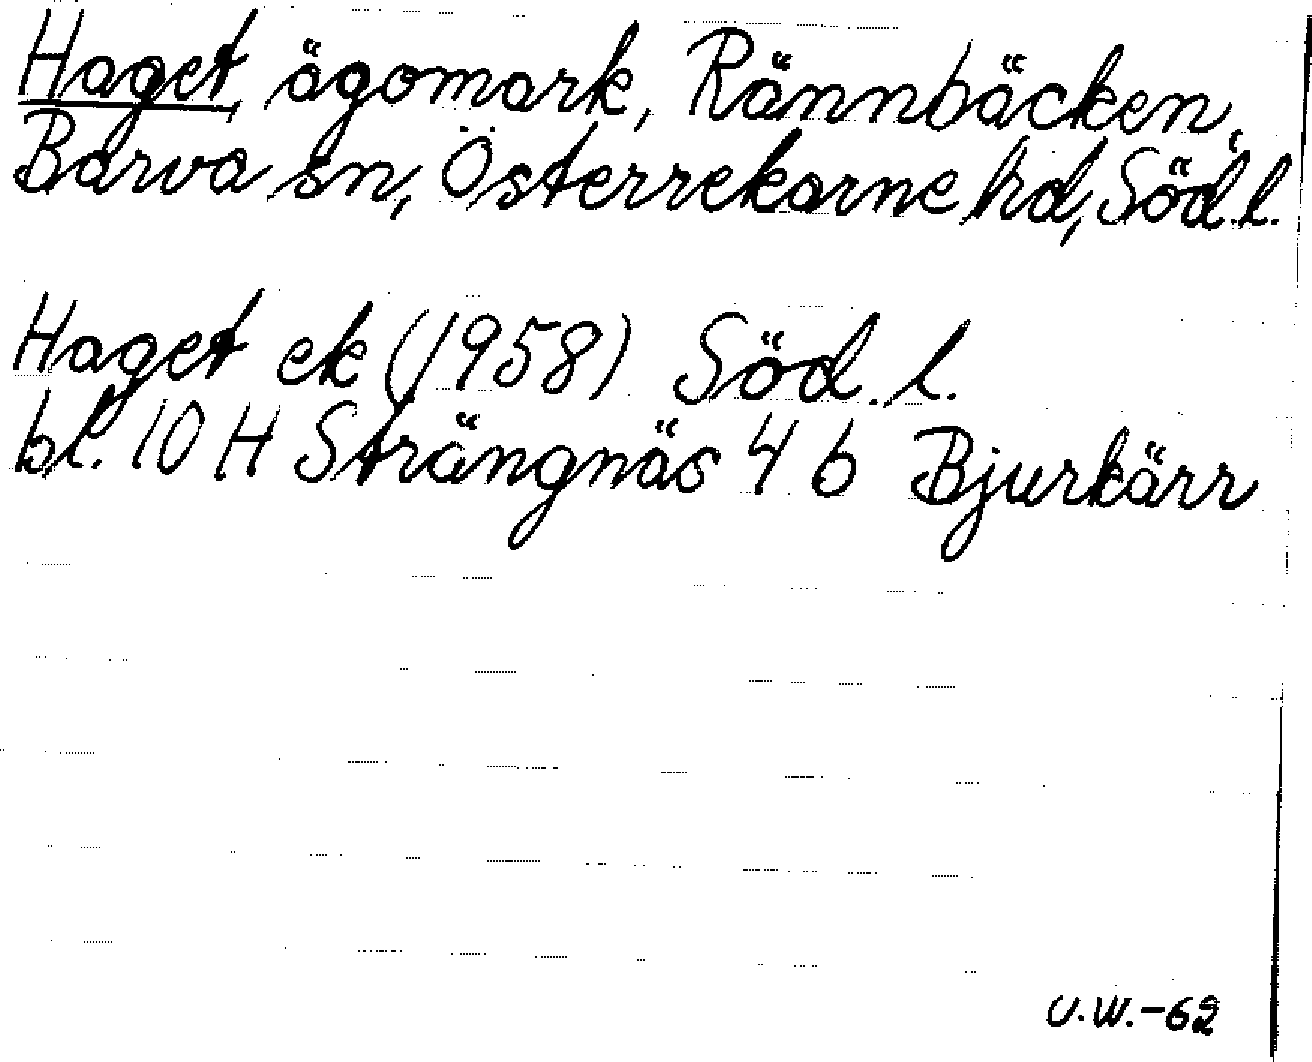 Haget, ägomark, Rännbäcken,
Barva sn, Österrekarne hd, Söd.l.
Haget ek (1958) Söd. l.
bl. 10 H Strängnäs 4 b Bjurkärr
U.W.-62